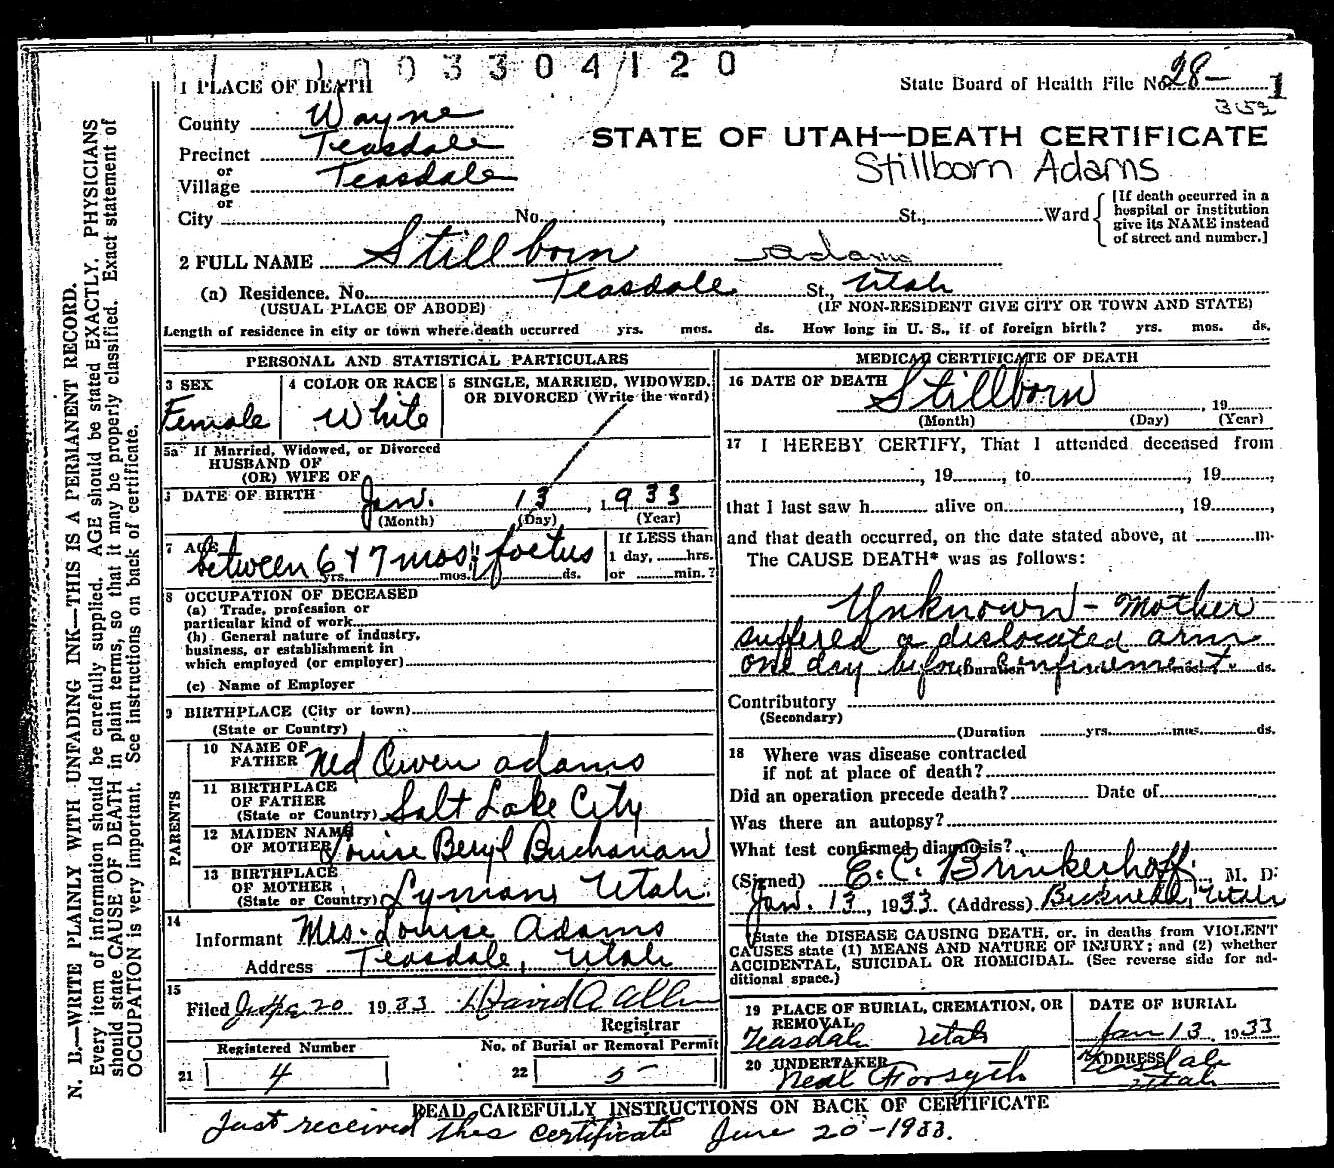 1003304120
1 PLACE OF DEATH
State Board of Health File No. 28- 1
County Wayne
Precinct Teasdale
or
Village Teasdale
or
City No. , St., Ward
STATE OF UTAH—DEATH CERTIFICATE
Stillborn Adams
[If death occurred in a
hospital or institution
give its NAME instead
of street and number.]
2 FULL NAME Stillborn Adams
(a) Residence. No. Teasdale St., Utah
(USUAL PLACE OF ABODE) (IF NON-RESIDENT GIVE CITY OR TOWN AND STATE)
Length of residence in city or town where death occurred yrs. mos. ds. How long in U. S., if of foreign birth? yrs. mos. ds.
PERSONAL AND STATISTICAL PARTICULARS
3 SEX
Female
4 COLOR OR RACE
White
5 SINGLE, MARRIED, WIDOWED,
OR DIVORCED (Write the word)
5a If Married, Widowed, or Divorced
HUSBAND OF
(OR) WIFE OF
DATE OF BIRTH Jan. 13, 1933
(Month) (Day) (Year)
7 AGE
between 6 & 7 mos. foetus
yrs. mos. ds.
If LESS than
1 day, hrs.
or min.?
8 OCCUPATION OF DECEASED
(a) Trade, profession or
particular kind of work
(b) General nature of industry,
business, or establishment in
which employed (or employer)
(c) Name of Employer
9 BIRTHPLACE (City or town)
(State or Country)
PARENTS
10 NAME OF
FATHER Ned Owen Adams
11 BIRTHPLACE
OF FATHER
(State or Country) Salt Lake City
12 MAIDEN NAME
OF MOTHER Louise Beryl Buchanan
13 BIRTHPLACE
OF MOTHER
(State or Country) Lyman, Utah.
14
Informant Mrs. Louise Adams
Address Teasdale, Utah
15
Filed 20 1933 David A Allen
Registrar
Registered Number
21 4
No. of Burial or Removal Permit
22 5
MEDICAL CERTIFICATE OF DEATH
16 DATE OF DEATH Stillborn , 19
(Month) (Day) (Year)
17 I HEREBY CERTIFY, That I attended deceased from
, 19 , to , 19 ,
that I last saw h alive on , 19 ,
and that death occurred, on the date stated above, at m.
The CAUSE DEATH* was as follows:
Unknown - Mother
suffered a dislocated arm
one day before confinement.
Duration ds.
Contributory
(Secondary)
(Duration yrs. mos. ds.
18 Where was disease contracted
if not at place of death?
Did an operation precede death? Date of
Was there an autopsy?
What test confirmed diagnosis?
(Signed) E. C. Brinkerhoff, M. D.
Jan. 13, 1933 (Address) Bicknell, Utah
State the DISEASE CAUSING DEATH, or, in deaths from VIOLENT
CAUSES state (1) MEANS AND NATURE OF INJURY; and (2) whether
ACCIDENTAL, SUICIDAL OR HOMICIDAL. (See reverse side for ad-
ditional space.)
19 PLACE OF BURIAL, CREMATION, OR
REMOVAL
Teasdale Utah
DATE OF BURIAL
Jan 13, 1933
20 UNDERTAKER
Neal Forsyth
ADDRESS
Teasdale
Utah
READ CAREFULLY INSTRUCTIONS ON BACK OF CERTIFICATE
Just received this certificate June 20-1933.
N. B.—WRITE PLAINLY WITH UNFADING INK—THIS IS A PERMANENT RECORD.
Every item of information should be carefully supplied. AGE should be stated EXACTLY. PHYSICIANS
should state CAUSE OF DEATH in plain terms, so that it may be properly classified. Exact statement of
OCCUPATION is very important. See instructions on back of certificate.